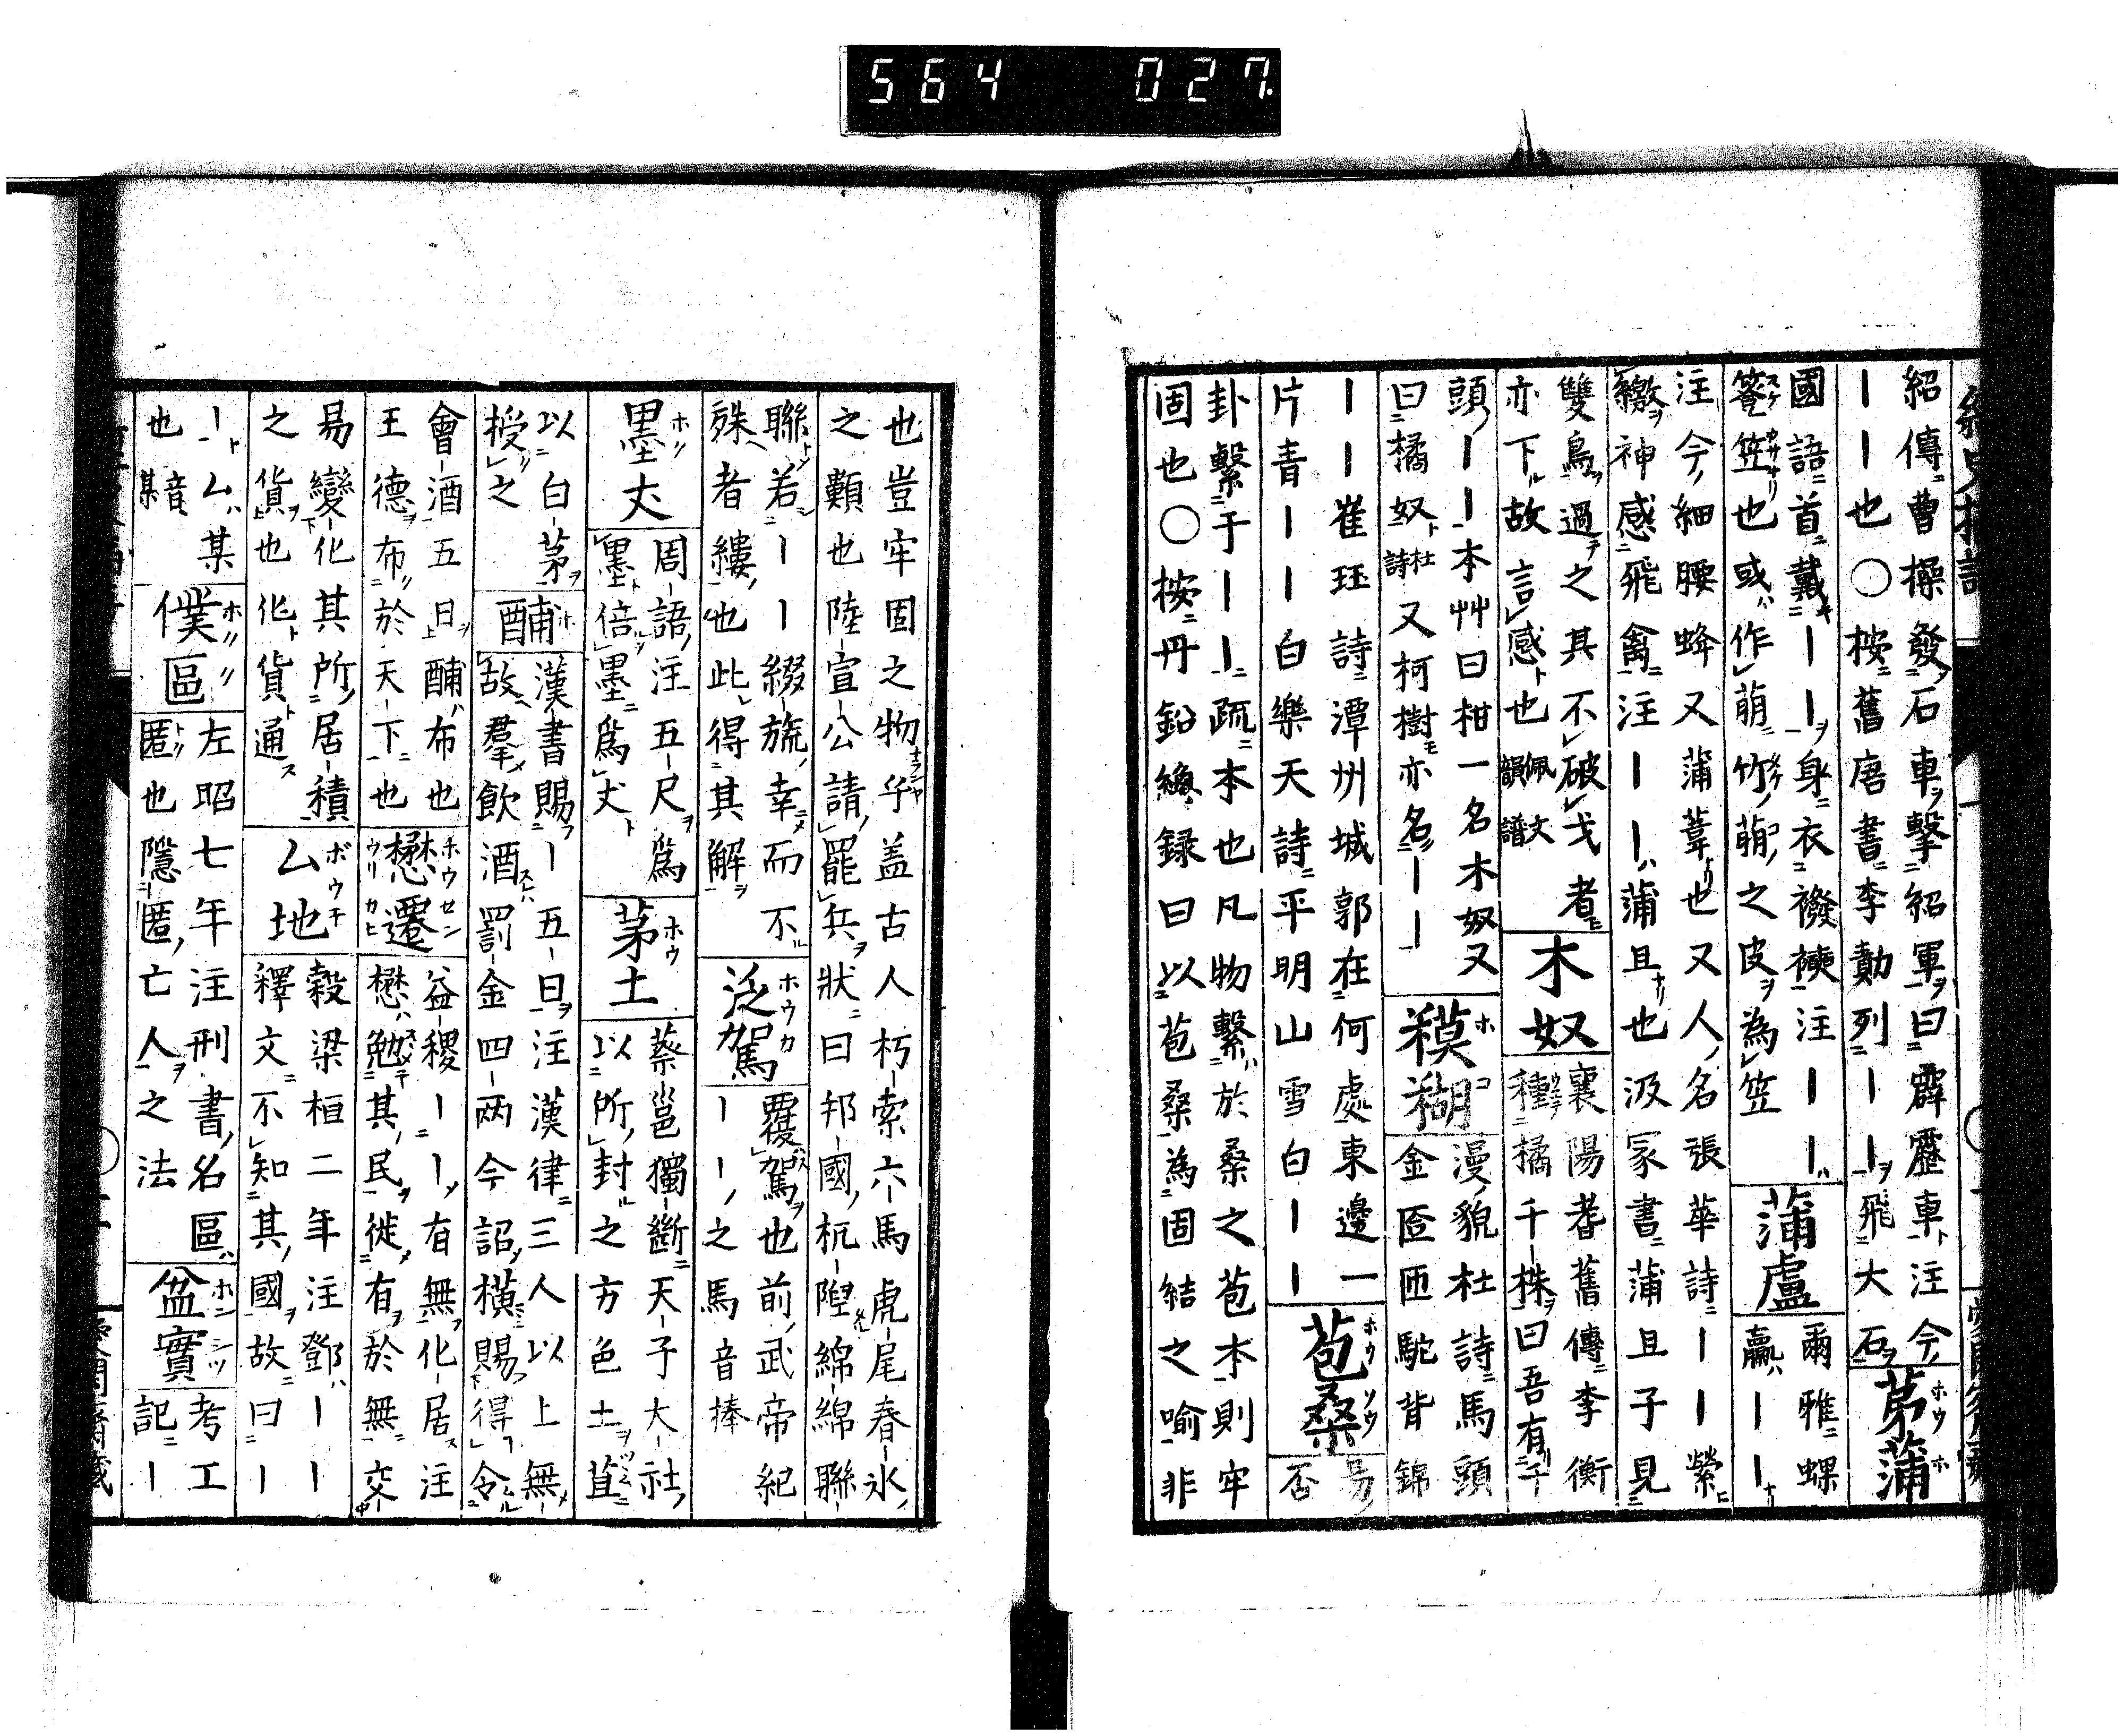 564 027.
紹傳曹操發石車擊紹軍曰霹靂車注今
｜｜也○按舊唐書李勣列｜｜飛大石
茅蒲
國語首戴｜｜身衣襏襫注｜｜
簦笠也或作萌竹萌之皮為笠
蒲盧
爾雅蜾
蠃｜｜
注今細腰蜂又蒲葦也又人名張華詩｜｜縈
繳神感飛禽注｜｜蒲且也汲冢書蒲且子見
雙鳥過之其不破弋者
亦下故言感也佩文韻譜
木奴
襄陽耆舊傳李衡
種橘千株曰吾有千
頭｜｜本艸曰柑一名木奴又
曰橘奴杜詩又柯樹亦名｜｜
糢糊
漫貌杜詩馬頭
金匼匝駝背錦
｜｜崔珏詩潭州城郭在何處東邊一
片青｜｜白樂天詩平明山雪白｜｜
苞桑
易
否
卦繫于｜｜疏本也凡物繫於桑之苞本則牢
固也○按丹鉛總録曰以苞桑為固結之喻非
也豈牢固之物乎盖古人朽索六馬虎尾春氷
之類也陸宣公請罷兵狀曰邦國杌隉綿綿聯
聯若｜｜綴旒幸而不
殊者縷也此得其解
泛駕
覆駕也前武帝紀
｜｜之馬音捧
墨丈
周語注五尺爲
墨倍墨爲丈
茅土
蔡邕獨斷天子大社
以所封之方色土苴
以白茅
授之
酺
漢書賜｜五日注漢律三人以上無
故羣飲酒罰金四兩今詔橫賜得令
會酒五日酺布也
王德布於天下也
懋遷
益稷｜｜有無化居注
懋勉其民徙有於無交
易變化其所居積
之貨也化貨通
厶地
穀梁桓二年注鄧｜｜
釋文不知其國故曰｜
｜厶某
也音某
僕區
左昭七年注刑書名區
匿也隱匿亡人之法
盆實
考工
記｜